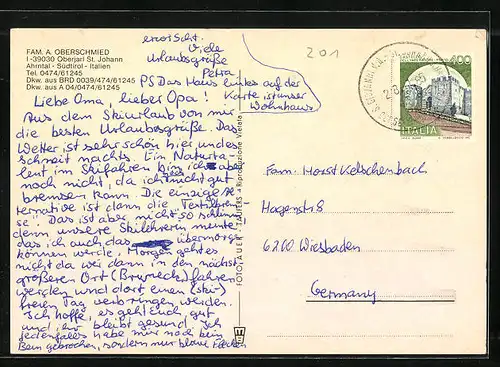 FAM. A. OBERSCHMIED
I-39030 Oberjarl St. Johann
Ahrntal - Südtirol - Italien
Tel. 0474/61245
Dkw. aus BRD 0039/474/61245
Dkw. aus A 04/0474/61245
erwischt.
Viele
Urlaubsgrüße
Petra
PS Das Haus links auf der
Karte ist unser
Wohnhaus
Liebe Oma, lieber Opa!
Aus dem Skiurlaub von mir
die besten Urlaubsgrüße. Das
Wetter ist sehr schön hier und es
schneit nachts. Ein Naturta-
lent im Skifahren bin ich
noch nicht, da ich nicht gut
bremsen kann. Die einzige
ternative ist dann die "
se". Das ist aber nicht so schlimm
denn unsere Skilehrerin meinte
das ich auch das übermorgen
können werde. Morgen geht es
nicht da wir dann in den nächst
größeren Ort (Bruneck) fahren
werden und dort einen (ski)
freien Tag verbringen werden.
Ich hoffe, es geht Euch gut
und ihr bleibt gesund. Ich
jedenfalls habe mir noch kein
Bein gebrochen, sondern nur blaue Flecken
201
400
ITALIA
Fam. Horst Ketschenbach
Hagenstr. 8
6200 Wiesbaden
Germany